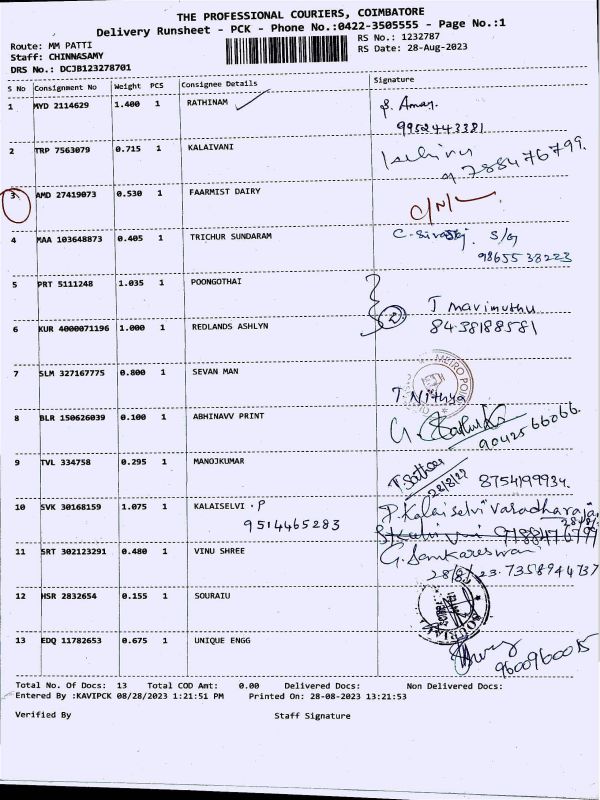 THE PROFESSIONAL COURIERS, COIMBATORE
Delivery Runsheet - PCK - Phone No.:0422-3505555 - Page No.:1
Route: MM PATTI RS No.: 1232787
Staff: CHINNASAMY RS Date: 28-Aug-2023
DRS No.: DCJB123278701
S No Consignment No Weight PCS Consignee Details Signature
1 MYD 2114629 1.400 1 RATHINAM
9952443381
2 TRP 7563079 0.715 1 KALAIVANI
3 AMD 27419073 0.530 1 FAARMIST DAIRY C/N/
4 MAA 103648873 0.405 1 TRICHUR SUNDARAM C. S/O
9865538223
5 PRT 5111248 1.035 1 POONGOTHAI
2 T Marimuthu
6 KUR 4000071196 1.000 1 REDLANDS ASHLYN 8438188581
7 SLM 327167775 0.800 1 SEVAN MAN
T. Nithya
8 BLR 150626039 0.100 1 ABHINAVV PRINT G.
9042566066
9 TVL 334758 0.295 1 MANOJKUMAR
8754199934
10 SVK 30168159 1.075 1 KALAISELVI . P P. Kalaiselvi Varadharaj
9514465283
11 SRT 302123291 0.480 1 VINU SHREE G. Sankareswari
28/8/23. 7358944737
12 HSR 2832654 0.155 1 SOURAIU
13 EDQ 11782653 0.675 1 UNIQUE ENGG
9600960015
Total No. Of Docs: 13 Total COD Amt: 0.00 Delivered Docs: Non Delivered Docs:
Entered By :KAVIPCK 08/28/2023 1:21:51 PM Printed On: 28-08-2023 13:21:53
Verified By Staff Signature